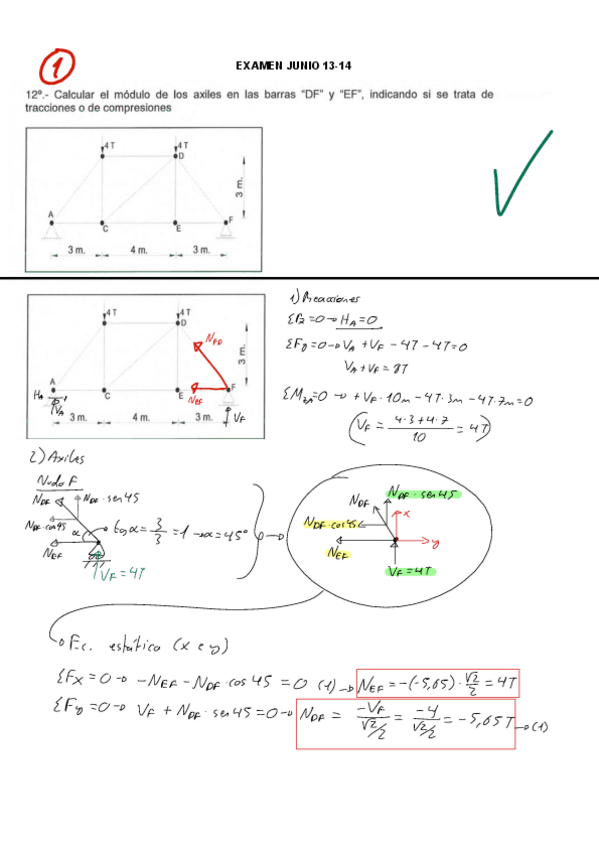 1
EXAMEN JUNIO 13-14
12º.- Calcular el módulo de los axiles en las barras "DF" y "EF", indicando si se trata de
tracciones o de compresiones
4T 4T
D
3 m.
A C E F
3 m. 4 m. 3 m.
4T 4T
D
N_FD
3 m.
A C E F
H_A V_A N_EF V_F
3 m. 4 m. 3 m.
1) Reacciones
ΣF_x=0 → H_A=0
ΣF_y=0 → V_A + V_F - 4T - 4T=0
V_A + V_F = 8T
ΣM_zA=0 → +V_F · 10m - 4T·3m - 4T·7m=0
(V_F = (4·3+4·7)/10 = 4T)
2) Axiles
Nudo F
N_DF N_DF · sen 45
N_DF·cos45 α tgα = 3/3 = 1 → α = 45°
N_EF
V_F = 4T
N_DF · sen 45
N_DF
N_DF·cos45 x
N_EF y
V_F = 4T
Ec. estática (x e y)
ΣF_x = 0 → -N_EF - N_DF · cos 45 = 0 (1) → N_EF = -(-5,65) · √2/2 = 4T
ΣF_y = 0 → V_F + N_DF · sen 45 = 0 → N_DF = -V_F/(√2/2) = -4/(√2/2) = -5,65T → (1)